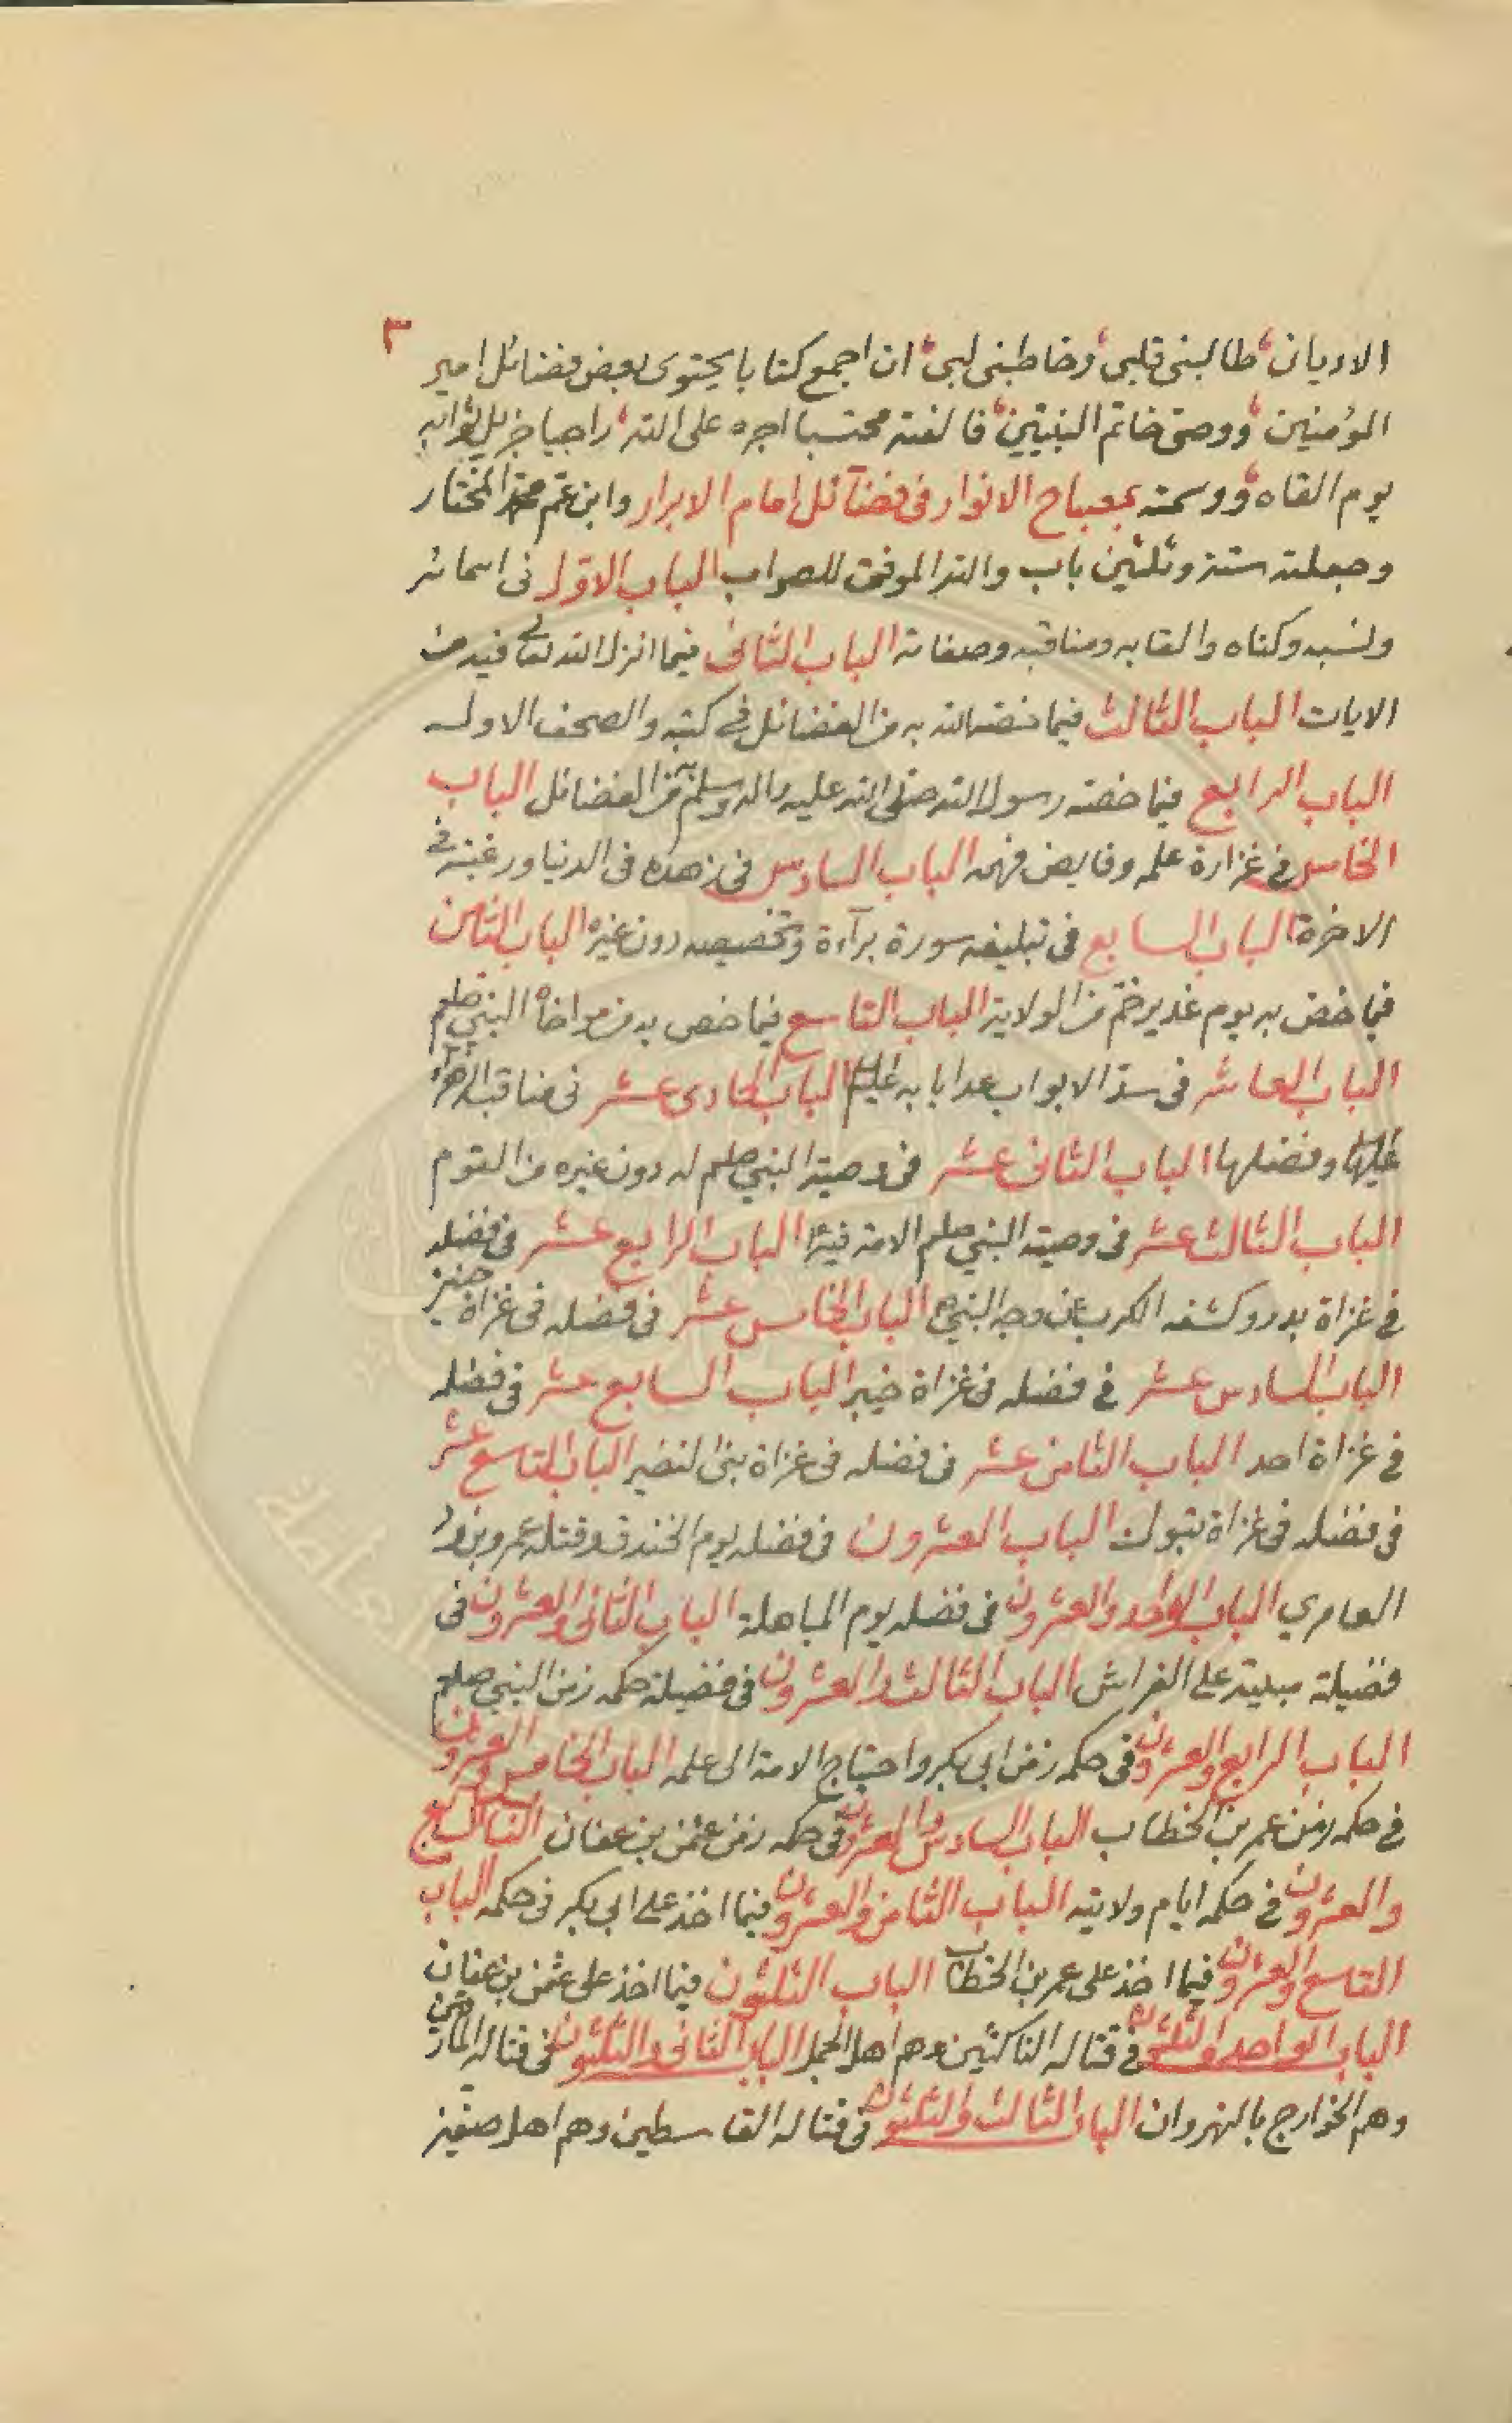 ٣
الاديان، طالبنى قلبى، وخاطبنى لبى، ان اجمع كتابا يحتوى بعض فضائل امير
المؤمنين، ووصى خاتم النبيين، فالفته محتسبا اجره على الله، راجيا جزيل ثوابه
يوم القاه، ووسمته بمصباح الانوار فى فضآئل امام الابرار وابن عم محمد المختار
وجعلته ستة وثلثين باب والله الموفق للصواب الباب الاول فى اسمائه
ونسبه وكناه والقابه ومناقبه وصفاته الباب الثانى فيما انزل الله تعالى فيه من
الايات الباب الثالث فيما خصه الله به من الفضائل فى كتبه والصحف الاوله
الباب الرابع فيما خصه رسول الله صلى الله عليه واله وسلم به من الفضائل الباب
الخامس فى غزارة علمه وفايض فهمه الباب السادس فى زهده فى الدنيا ورغبته فى
الاخرة الباب السابع فى تبليغه سورة برآءة وتخصيصه دون غيره الباب الثامن
فيما خص به يوم غدير خم من الولاية الباب التاسع فيما خص به من مواخاة النبى صلعم
الباب العاشر فى سد الابواب عدا بابه عليه السلم الباب الحادى عشر فى مناقب الزهراء
عليها السلم وفضلها الباب الثانى عشر فى وصية النبى صلعم له دون غيره من القوم
الباب الثالث عشر فى وصية النبى صلعم الامة فيه الباب الرابع عشر فى فضله
فى غزاة بدر وكشفه الكرب عن وجه النبى ص الباب الخامس عشر فى فضله فى غزاة حنين
الباب السادس عشر فى فضله فى غزاة خيبر الباب السابع عشر فى فضله
فى غزاة احد الباب الثامن عشر فى فضله فى غزاة بنى النضير الباب التاسع عشر
فى فضله فى غزاة تبوك الباب العشرون فى فضله يوم الخندق وقتله عمرو بن ود
العامري الباب الواحد والعشرون فى فضله يوم المباهلة الباب الثانى والعشرون فى
فضيلة مبيته على الفراش الباب الثالث والعشرون فى فضيلة حكمه زمن النبى صلعم
الباب الرابع والعشرون فى حكمه زمن ابى بكر واحتياج الامة الى علمه الباب الخامس والعشرون
فى حكمه زمن عمر بن الخطاب الباب السادس والعشرون فى حكمه زمن عثمن بن عفان السابع
والعشرون فى حكمه ايام ولايته الباب الثامن والعشرون فيما اخذ على ابى بكر فى حكمه الباب
التاسع والعشرون فيما اخذ على عمر بن الخطاب الباب الثلثون فيما اخذ على عثمن بن عفان
الباب الواحد والثلثون فى قتاله الناكثين وهم اهل الجمل الباب الثانى والثلثون فى قتاله المارقين
وهم الخوارج بالنهروان الباب الثالث والثلثون فى قتاله القاسطين وهم اهل صفين